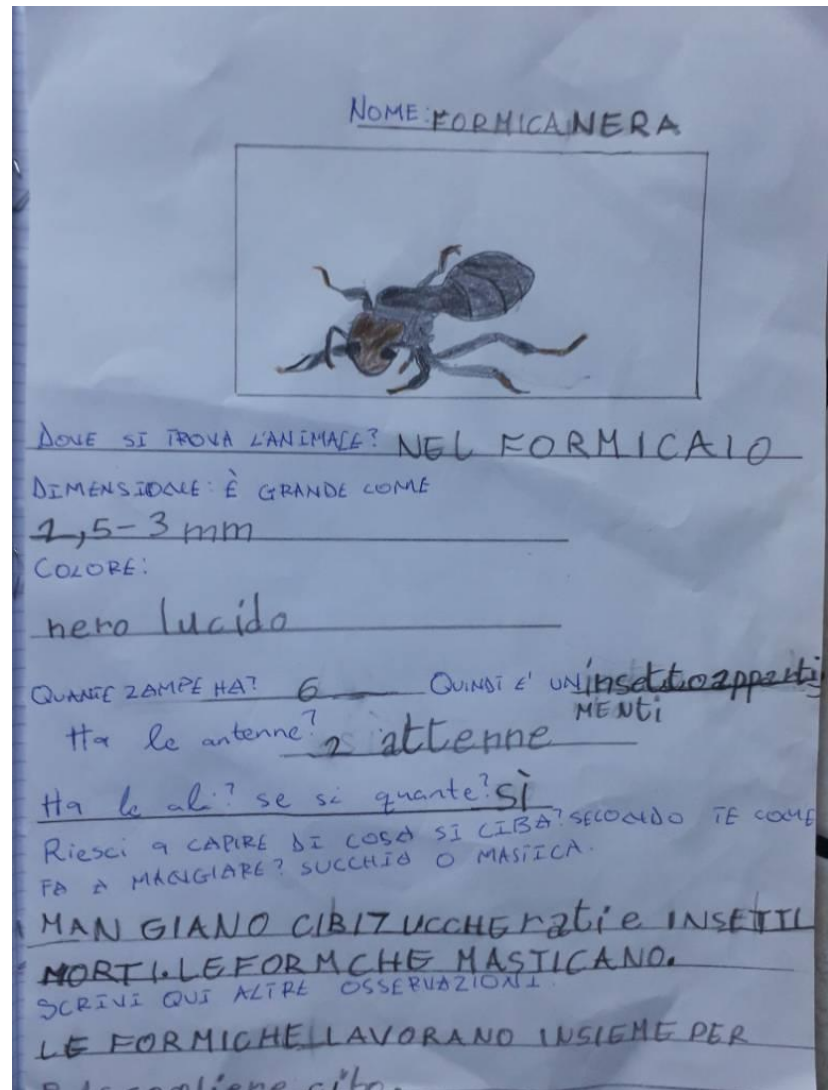 NOME: FORMICA NERA
DOVE SI TROVA L'ANIMALE? NEL FORMICAIO
DIMENSIONE: È GRANDE COME
2,5-3 mm
COLORE:
nero lucido
QUANTE ZAMPE HA? 6 QUINDI E' UN insetto apparti
MENTI
Ha le antenne? 2 attenne
Ha le ali? se si quante? sì
Riesci a CAPIRE DI COSA SI CIBA? SECONDO TE COME
FA A MANGIARE? SUCCHIA O MASTICA.
MANGIANO CIBI ZUCCHErati e INSETTI
MORTI. LE FORMCHE MASTICANO.
SCRIVI QUI ALTRE OSSERVAZIONI.
LE FORMICHE LAVORANO INSIEME PER
cibo.